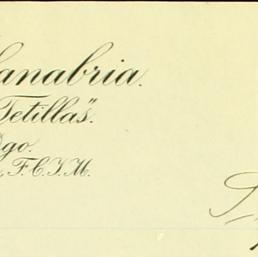 anabria.
Tetillas".
Dgo.
F.C.I.M.